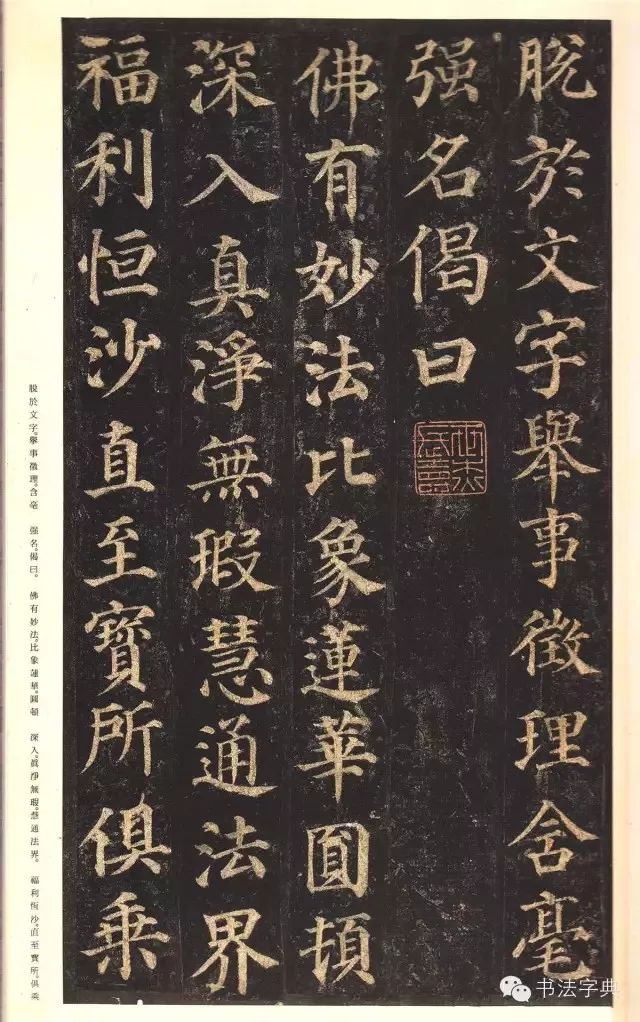 脱於文字舉事徵理含毫
强名偈曰
佛有妙法比象蓮華圓頓
深入真淨無瑕慧通法界
福利恒沙直至寶所俱乘
脫於文字。舉事徵理。含毫　强名。偈曰。　佛有妙法。比象蓮華。圓頓　深入。眞淨無瑕。慧通法界。　福利恆沙。直至寶所。俱乘
书法字典